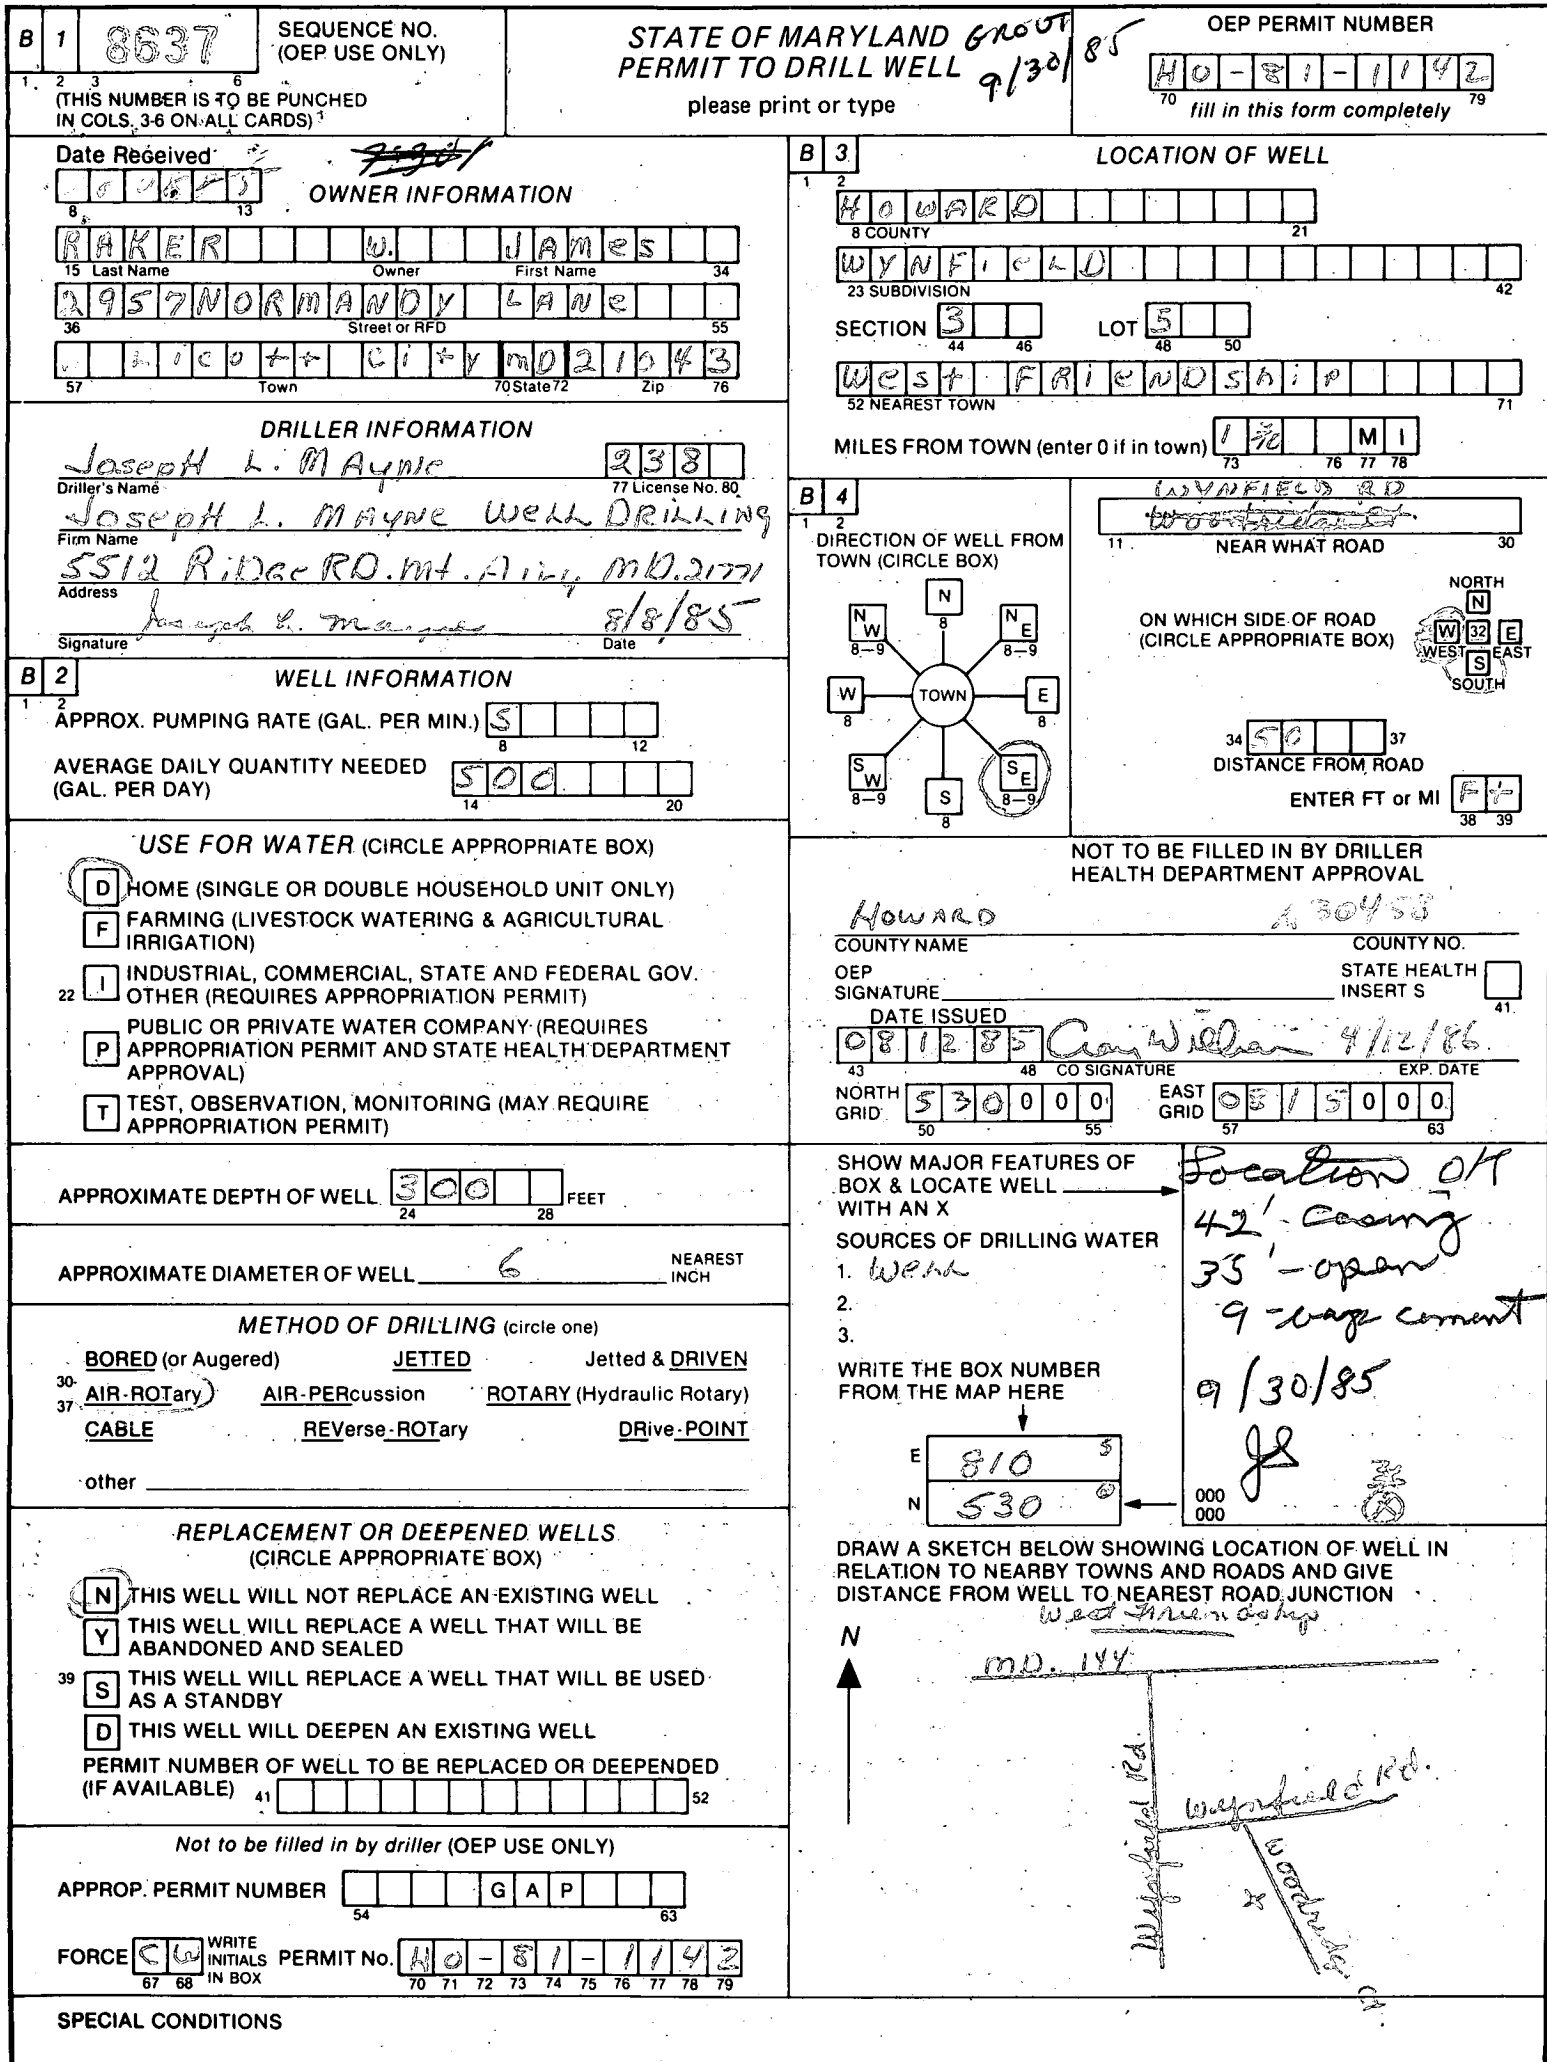 B 1
8637
SEQUENCE NO.
(OEP USE ONLY)
1 2 3 6
(THIS NUMBER IS TO BE PUNCHED
IN COLS. 3-6 ON ALL CARDS)
STATE OF MARYLAND
PERMIT TO DRILL WELL
please print or type
GROUT
9/30/85
OEP PERMIT NUMBER
HO-81-1142
70 79
fill in this form completely
Date Received
8 13
OWNER INFORMATION
RAKER W. JAMES
15 Last Name Owner First Name 34
2957 NORMANDY LANE
36 Street or RFD 55
licott City MD 21043
57 Town 70 State 72 Zip 76
DRILLER INFORMATION
Joseph L. Mayne 238
Driller's Name 77 License No. 80
Joseph L. Mayne Well Drilling
Firm Name
5512 Ridge RD. Mt. Airy MD. 21771
Address
Joseph L. Mayne 8/8/85
Signature Date
B 2
1 2
WELL INFORMATION
APPROX. PUMPING RATE (GAL. PER MIN.) 5
8 12
AVERAGE DAILY QUANTITY NEEDED
(GAL. PER DAY) 500
14 20
USE FOR WATER (CIRCLE APPROPRIATE BOX)
D HOME (SINGLE OR DOUBLE HOUSEHOLD UNIT ONLY)
F FARMING (LIVESTOCK WATERING & AGRICULTURAL
IRRIGATION)
22 I INDUSTRIAL, COMMERCIAL, STATE AND FEDERAL GOV.
OTHER (REQUIRES APPROPRIATION PERMIT)
P PUBLIC OR PRIVATE WATER COMPANY (REQUIRES
APPROPRIATION PERMIT AND STATE HEALTH DEPARTMENT
APPROVAL)
T TEST, OBSERVATION, MONITORING (MAY REQUIRE
APPROPRIATION PERMIT)
APPROXIMATE DEPTH OF WELL 300 FEET
24 28
APPROXIMATE DIAMETER OF WELL 6 NEAREST
INCH
METHOD OF DRILLING (circle one)
BORED (or Augered) JETTED Jetted & DRIVEN
30-
37 AIR-ROTary AIR-PERcussion ROTARY (Hydraulic Rotary)
CABLE REVerse-ROTary DRive-POINT
other
REPLACEMENT OR DEEPENED WELLS
(CIRCLE APPROPRIATE BOX)
N THIS WELL WILL NOT REPLACE AN EXISTING WELL
Y THIS WELL WILL REPLACE A WELL THAT WILL BE
ABANDONED AND SEALED
39 S THIS WELL WILL REPLACE A WELL THAT WILL BE USED
AS A STANDBY
D THIS WELL WILL DEEPEN AN EXISTING WELL
PERMIT NUMBER OF WELL TO BE REPLACED OR DEEPENDED
(IF AVAILABLE) 41 52
Not to be filled in by driller (OEP USE ONLY)
APPROP. PERMIT NUMBER GAP
54 63
FORCE CW WRITE
INITIALS
IN BOX PERMIT No. HO-81-1142
67 68 70 71 72 73 74 75 76 77 78 79
SPECIAL CONDITIONS
B 3
1 2
LOCATION OF WELL
HOWARD
8 COUNTY 21
WYNFIELD
23 SUBDIVISION 42
SECTION 3 LOT 5
44 46 48 50
West FRIENDShip
52 NEAREST TOWN 71
MILES FROM TOWN (enter 0 if in town) 1 MI
73 76 77 78
B 4
1 2
DIRECTION OF WELL FROM
TOWN (CIRCLE BOX)
N
8
NW
8-9
NE
8-9
W
8
TOWN
E
8
SW
8-9
SE
8-9
S
8
WYNFIELD RD
11 NEAR WHAT ROAD 30
ON WHICH SIDE OF ROAD
(CIRCLE APPROPRIATE BOX)
NORTH
N
W 32 E
WEST EAST
S
SOUTH
34 50 37
DISTANCE FROM ROAD
ENTER FT or MI Ft
38 39
NOT TO BE FILLED IN BY DRILLER
HEALTH DEPARTMENT APPROVAL
HOWARD 30458
COUNTY NAME COUNTY NO.
OEP
SIGNATURE
STATE HEALTH
INSERT S
41
DATE ISSUED
081285 Craig William 4/12/86
43 48 CO SIGNATURE EXP. DATE
NORTH
GRID 530000
50 55
EAST
GRID 0815000
57 63
SHOW MAJOR FEATURES OF
BOX & LOCATE WELL
WITH AN X
SOURCES OF DRILLING WATER
1. Well
2.
3.
WRITE THE BOX NUMBER
FROM THE MAP HERE
E 810 5
N 530 0
Location OK
42' - casing
35' - open
9 - bags cement
9/30/85
JS
000
000
DRAW A SKETCH BELOW SHOWING LOCATION OF WELL IN
RELATION TO NEARBY TOWNS AND ROADS AND GIVE
DISTANCE FROM WELL TO NEAREST ROAD JUNCTION
West Friendship
N
MD. 144
Rd.
Wynfield Rd.
X